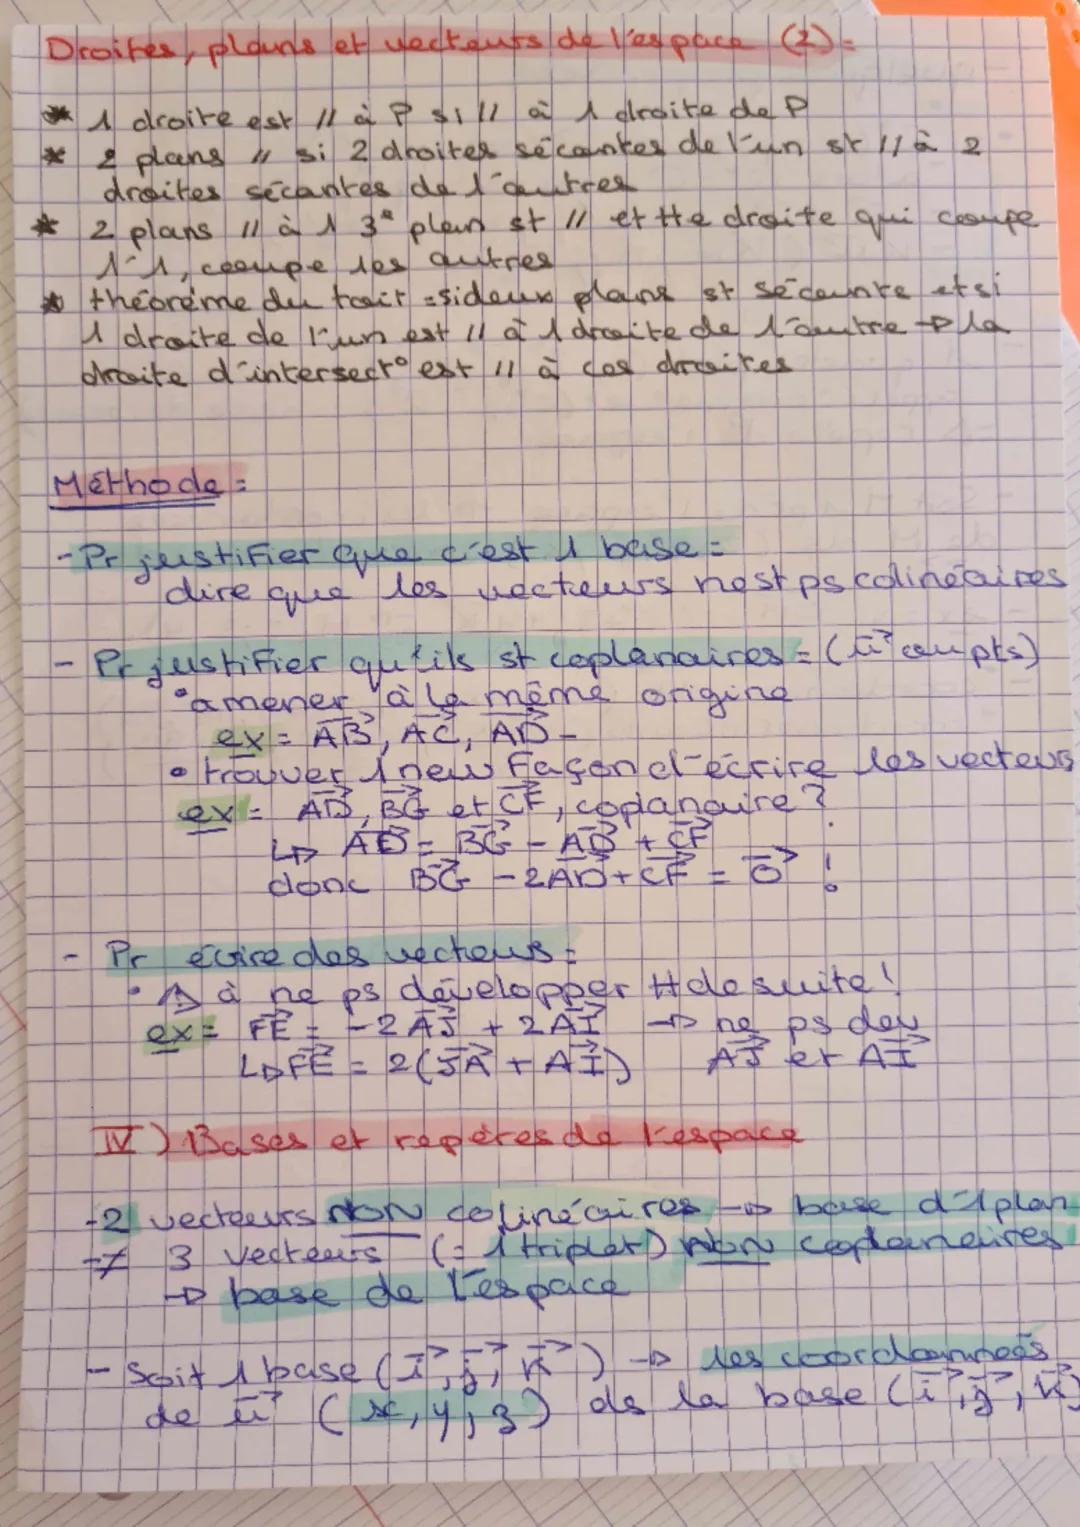 Droites, plans et vecteurs de l'espace (2) =
* 1 droite est // à P si // à 1 droite de P
* 2 plans // si 2 droites sécantes de l'un st // à 2
droites sécantes de l'autres
* 2 plans // à 1 3e plan st // et tte droite qui coupe
l'1, coupe les autres
* théorème du toit = si deux plans st sécants et si
1 droite de l'un est // à 1 droite de l'autre → la
droite d'intersect° est // à ces droites
Méthode =
- Pr justifier que c'est 1 base =
dire que les vecteurs nest ps colinéaires
- Pr justifier qu'ils st coplanaires = (u⃗ ou pts)
• amener à la même origine
ex = AB⃗, AC⃗, AD⃗ -
• trouver 1 new façon d'écrire les vecteurs
ex = AD⃗, BG⃗ et CF⃗, coplanaire ?
↳ AD⃗ = BG⃗ - AD⃗ + CF⃗
donc BG⃗ - 2AD⃗ + CF⃗ = 0⃗ !
- Pr écrire des vecteurs =
• ⚠ à ne ps développer tt de suite !
ex = FE⃗ = -2AJ⃗ + 2AI⃗ → ne ps dev
↳ FE⃗ = 2(JA⃗ + AI⃗) AJ⃗ et AI⃗
IV) Bases et repères de l'espace
- 2 vecteurs NON colinéaires → base d'1 plan
- ≠ 3 vecteurs (= 1 triplet) NON coplanaires
→ base de l'espace
- Soit 1 base (i⃗, j⃗, k⃗) → les coordonnées
de u⃗ (x, y, z) ds la base (i⃗, j⃗, k⃗)